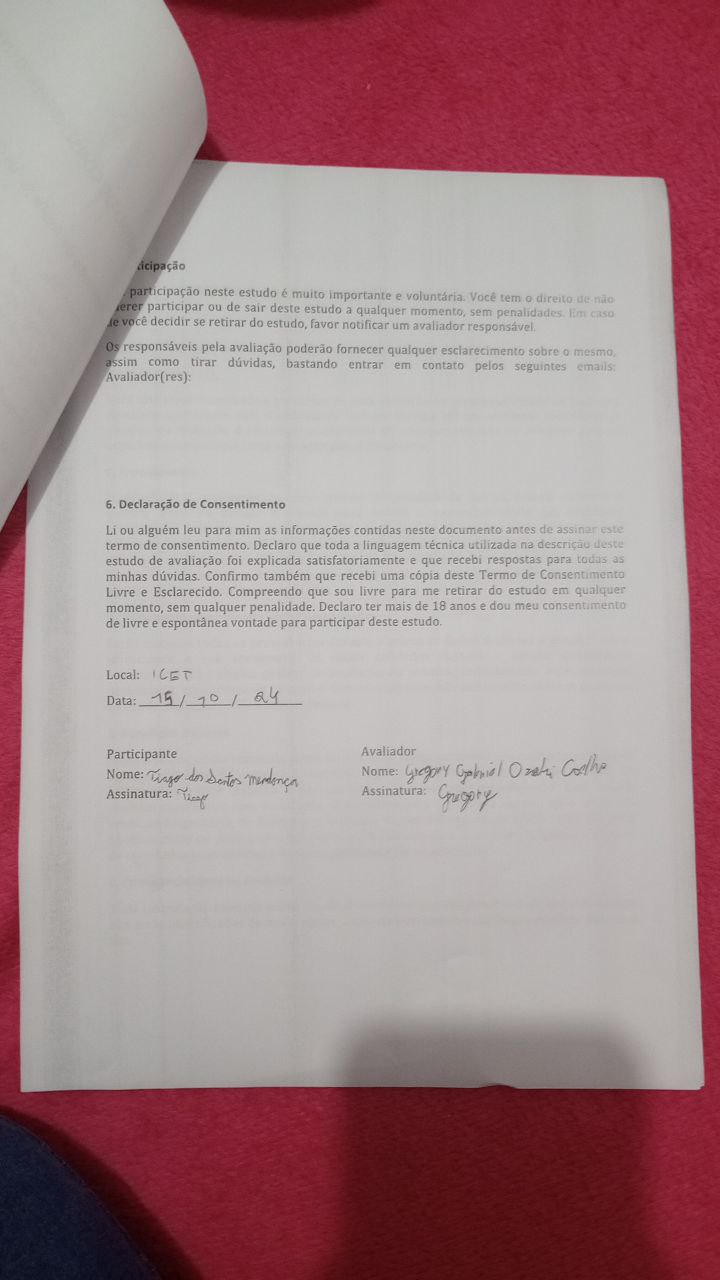 ticipação
participação neste estudo é muito importante e voluntária. Você tem o direito de não
participar ou de sair deste estudo a qualquer momento, sem penalidades. Em caso
de você decidir se retirar do estudo, favor notificar um avaliador responsável.
Os responsáveis pela avaliação poderão fornecer qualquer esclarecimento sobre o mesmo,
assim como tirar dúvidas, bastando entrar em contato pelos seguintes emails:
Avaliador(res):
6. Declaração de Consentimento
Li ou alguém leu para mim as informações contidas neste documento antes de assinar este
termo de consentimento. Declaro que toda a linguagem técnica utilizada na descrição deste
estudo de avaliação foi explicada satisfatoriamente e que recebi respostas para todas as
minhas dúvidas. Confirmo também que recebi uma cópia deste Termo de Consentimento
Livre e Esclarecido. Compreendo que sou livre para me retirar do estudo em qualquer
momento, sem qualquer penalidade. Declaro ter mais de 18 anos e dou meu consentimento
de livre e espontânea vontade para participar deste estudo.
Local: ICET
Data: 15/10/24
Participante
Nome: Tiago dos Santos Mendonça
Assinatura: Tiago
Avaliador
Nome: Gregory Gabriel Coelho
Assinatura: Gregory